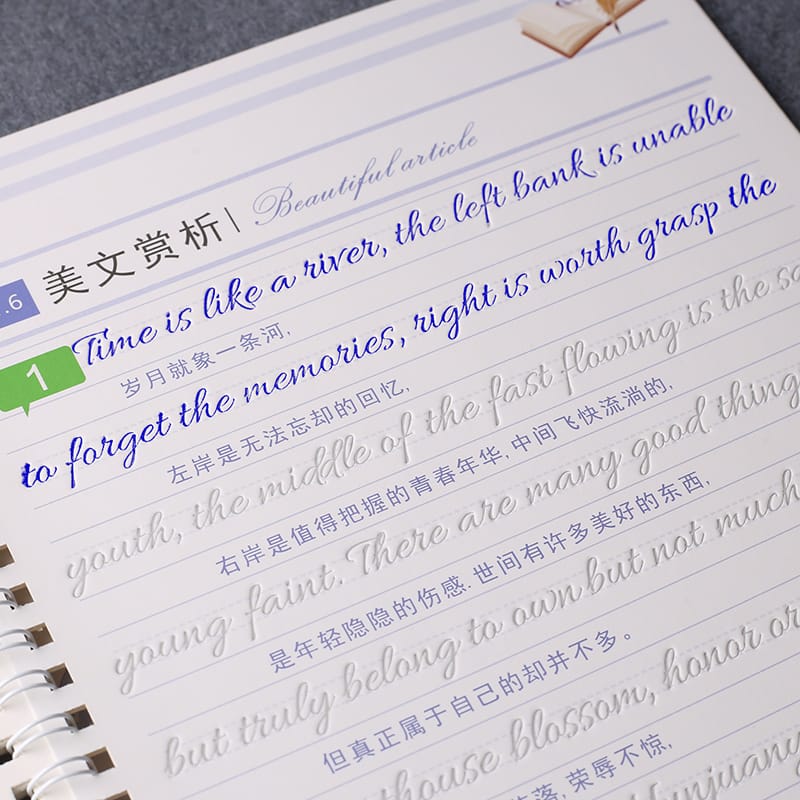 .6 美文赏析 | Beautiful article
1 Time is like a river, the left bank is unable
岁月就象一条河,
to forget the memories, right is worth grasp the
左岸是无法忘却的回忆,
youth, the middle of the fast flowing is the
右岸是值得把握的青春年华,中间飞快流淌的,
young faint. There are many good thing
是年轻隐隐的伤感.世间有许多美好的东西,
but truly belong to own but not much
但真正属于自己的却并不多。
house blossom, honor or
落,荣辱不惊,